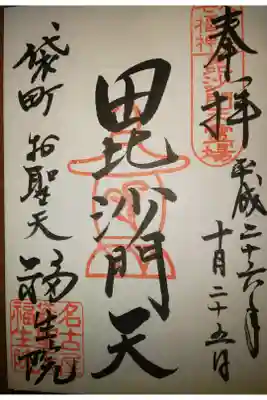 奉拝
平成二十六年
十月二十五日
毘沙門天
袋町 お聖天
福生院
七福神
名古屋
福生院